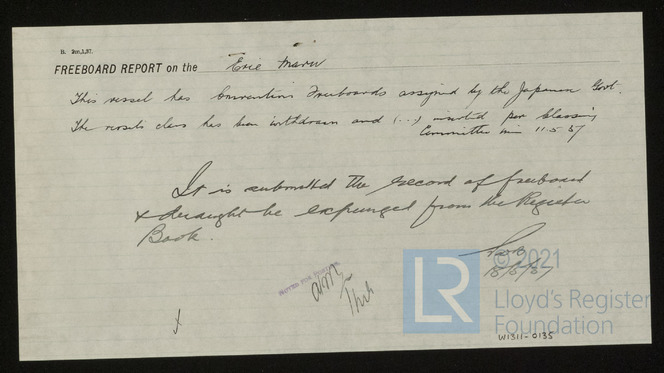 FREEBOARD REPORT on the Erie Maru
This vessel has Convention Freeboards assigned by the Japanese Govt.
The vessel's class has been withdrawn and (...) inserted per Classing
Committee min 11.5.37
It is submitted the record of freeboard
& draught be expunged from the Register
Book.
© 2021
LR
Lloyd's Register
Foundation
W1311-0135